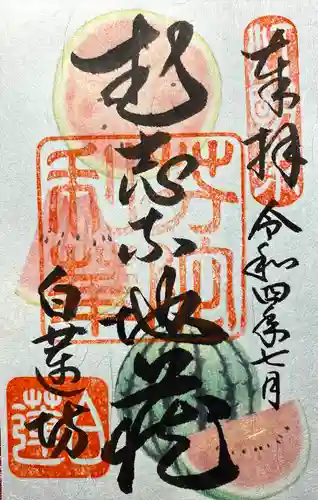 奉拝
令和四年七月
武志奈地蔵
白蓮坊